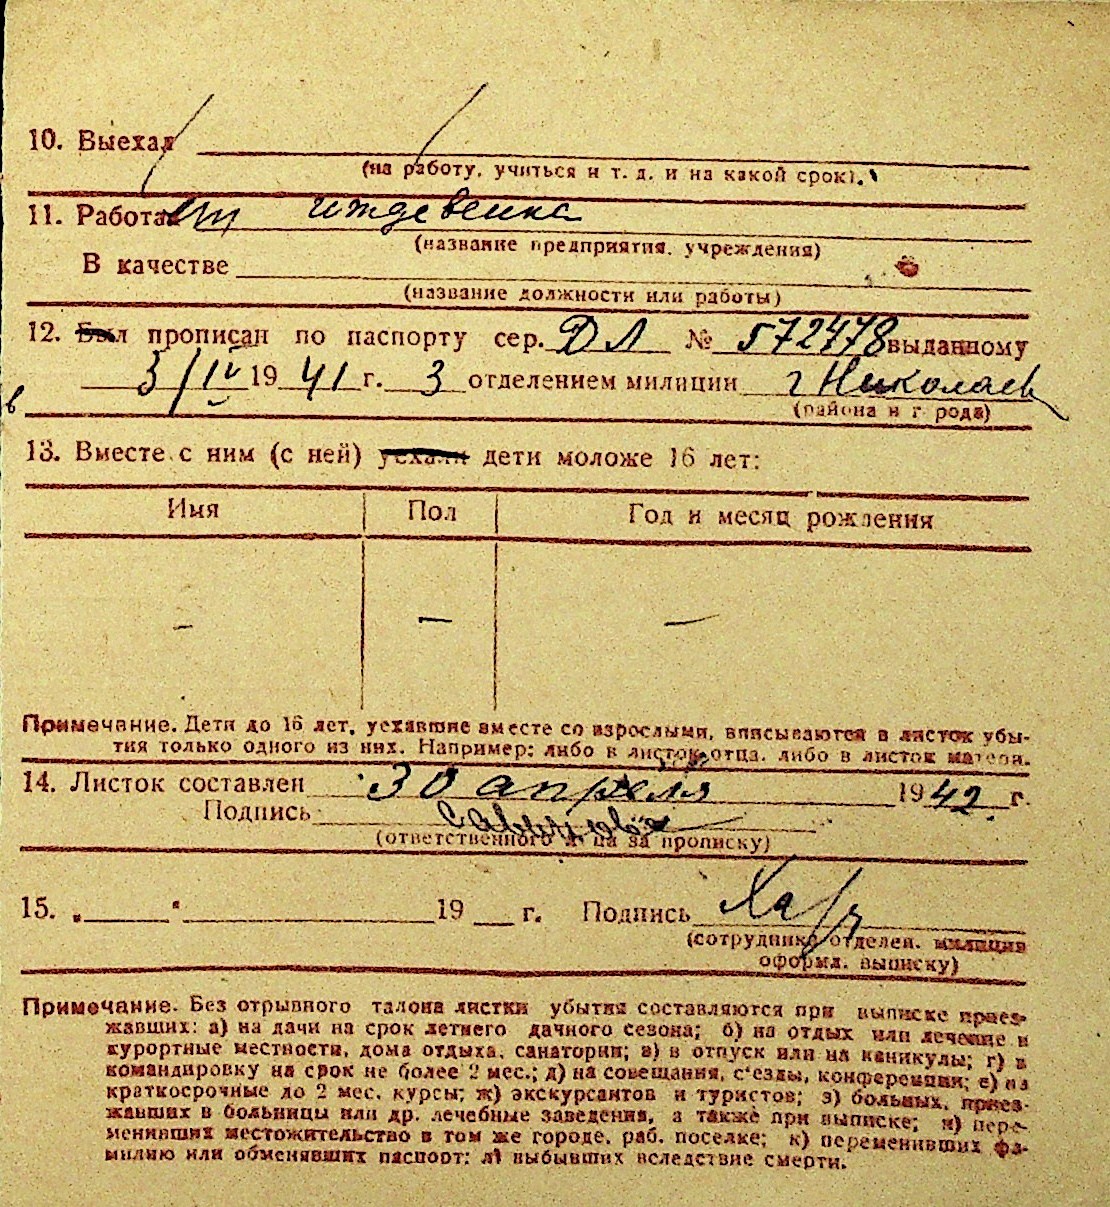 10. Выехал
(на работу, учиться и т. д. и на какой срок).
11. Работает иждевенка
(название предприятия, учреждения)
В качестве
(название должности или работы)
12. Был прописан по паспорту сер. ДЛ № 572478 выданному
3/IV 1941 г. 3 отделением милиции г Николаев
в
(района и г рода)
13. Вместе с ним (с ней) уехали дети моложе 16 лет:
Имя Пол Год и месяц рождения
— — —
Примечание. Дети до 16 лет, уехавшие вместе со взрослыми, вписываются в листок убы-
тия только одного из них. Например: либо в листок отца, либо в листок матери.
14. Листок составлен 30 апреля 1942 г.
Подпись
(ответственного лица за прописку)
15. „ " 19 г. Подпись
(сотрудника отделен. милиции
оформл. выписку)
Примечание. Без отрывного талона листки убытия составляются при выписке приез-
жавших: а) на дачи на срок летнего дачного сезона; б) на отдых или лечение в
курортные местности, дома отдыха, санатории; в) в отпуск или на каникулы; г) в
командировку на срок не более 2 мес.; д) на совещания, с'езды, конференции; е) на
краткосрочные до 2 мес. курсы; ж) экскурсантов и туристов; з) больных, приез-
жавших в больницы или др. лечебные заведения, а также при выписке; и) пере-
менивших местожительство в том же городе, раб. поселке; к) переменивших фа-
милию или обменявших паспорт; л) выбывших вследствие смерти.